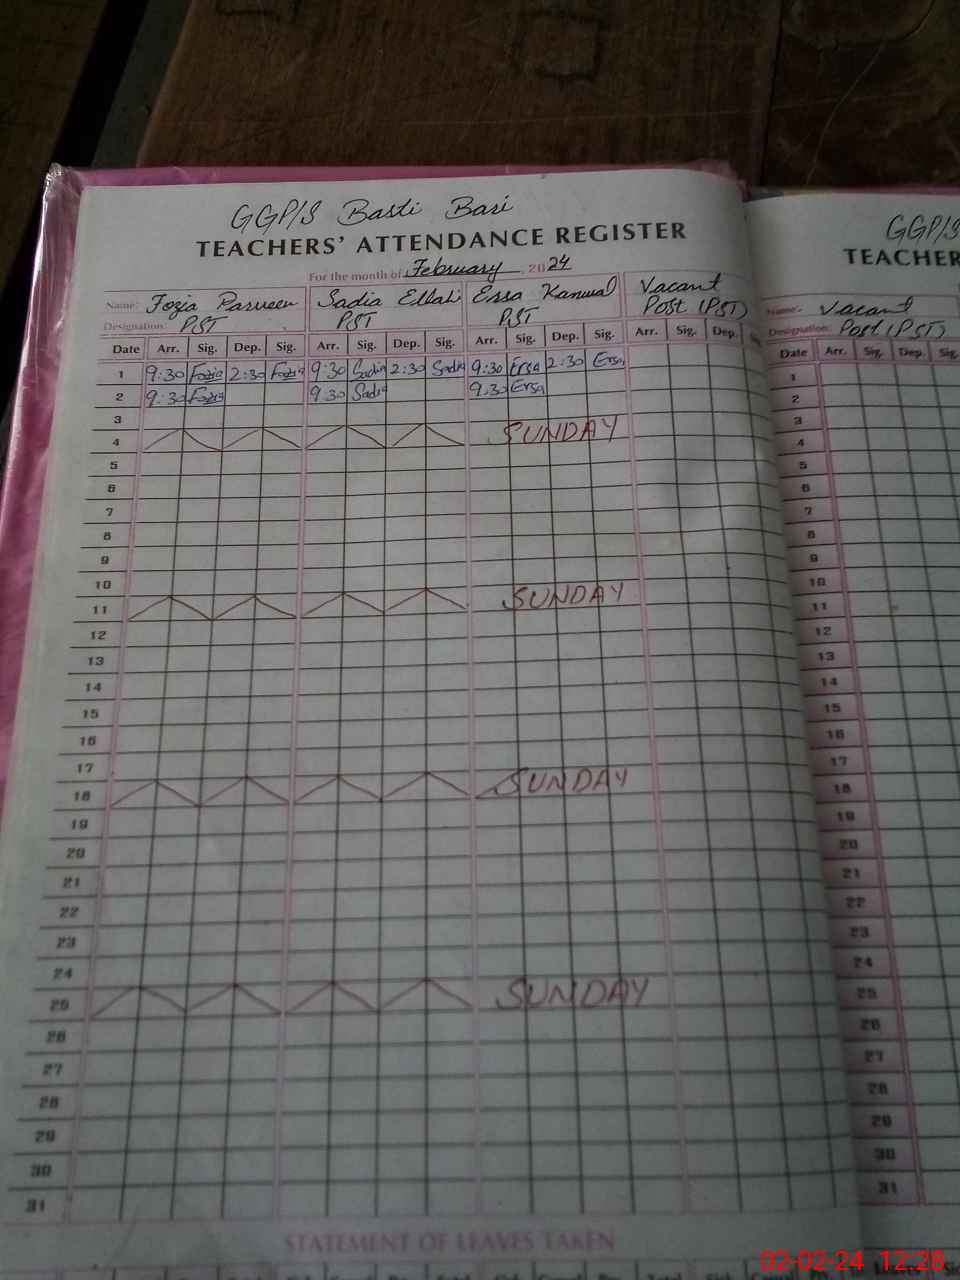 GGP/S Basti Bari
TEACHERS' ATTENDANCE REGISTER
For the month of February, 2024
Name: Fozia Parveen Sadia Ellahi Erssa Kanwal Vacant
Designation: PST PST PST Post (PST)
Date Arr. Sig. Dep. Sig. Arr. Sig. Dep. Sig. Arr. Sig. Dep. Sig. Arr. Sig. Dep.
1 9:30 Fozia 2:30 Fozia 9:30 Sadia 2:30 Sadia 9:30 Ersa 2:30 Ersa
2 9:30 Fozia 9:30 Sadia 9:30 Ersa
3
4 SUNDAY
5
6
7
8
9
10
11 SUNDAY
12
13
14
15
16
17
18 SUNDAY
19
20
21
22
23
24
25 SUNDAY
26
27
28
29
30
31
STATEMENT OF LEAVES TAKEN
GGP/S
TEACHER
Name: Vacant
Designation: Post (PST)
Date Arr. Sig. Dep. Sig.
1
2
3
4
5
6
7
8
9
10
11
12
13
14
15
16
17
18
19
20
21
22
23
24
25
26
27
28
29
30
31
02-02-24 12:28